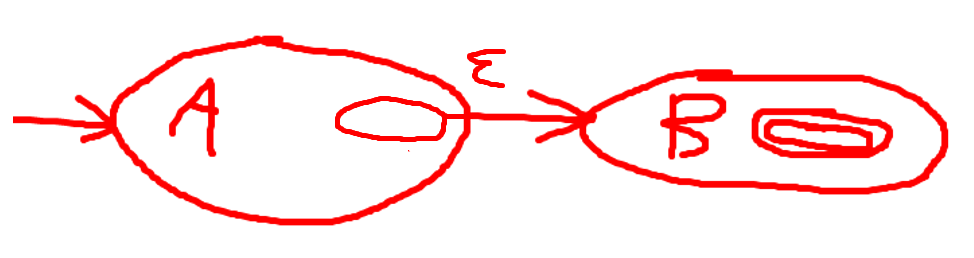 A ε B